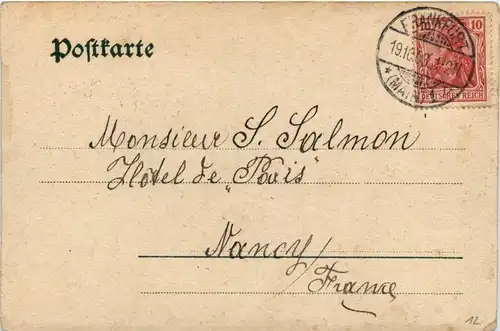 Postkarte
FRANKFURT
10
DEUTSCHES REICH
Monsieur S. Salmon
Hôtel de „Paris"
Nancy/
France
12